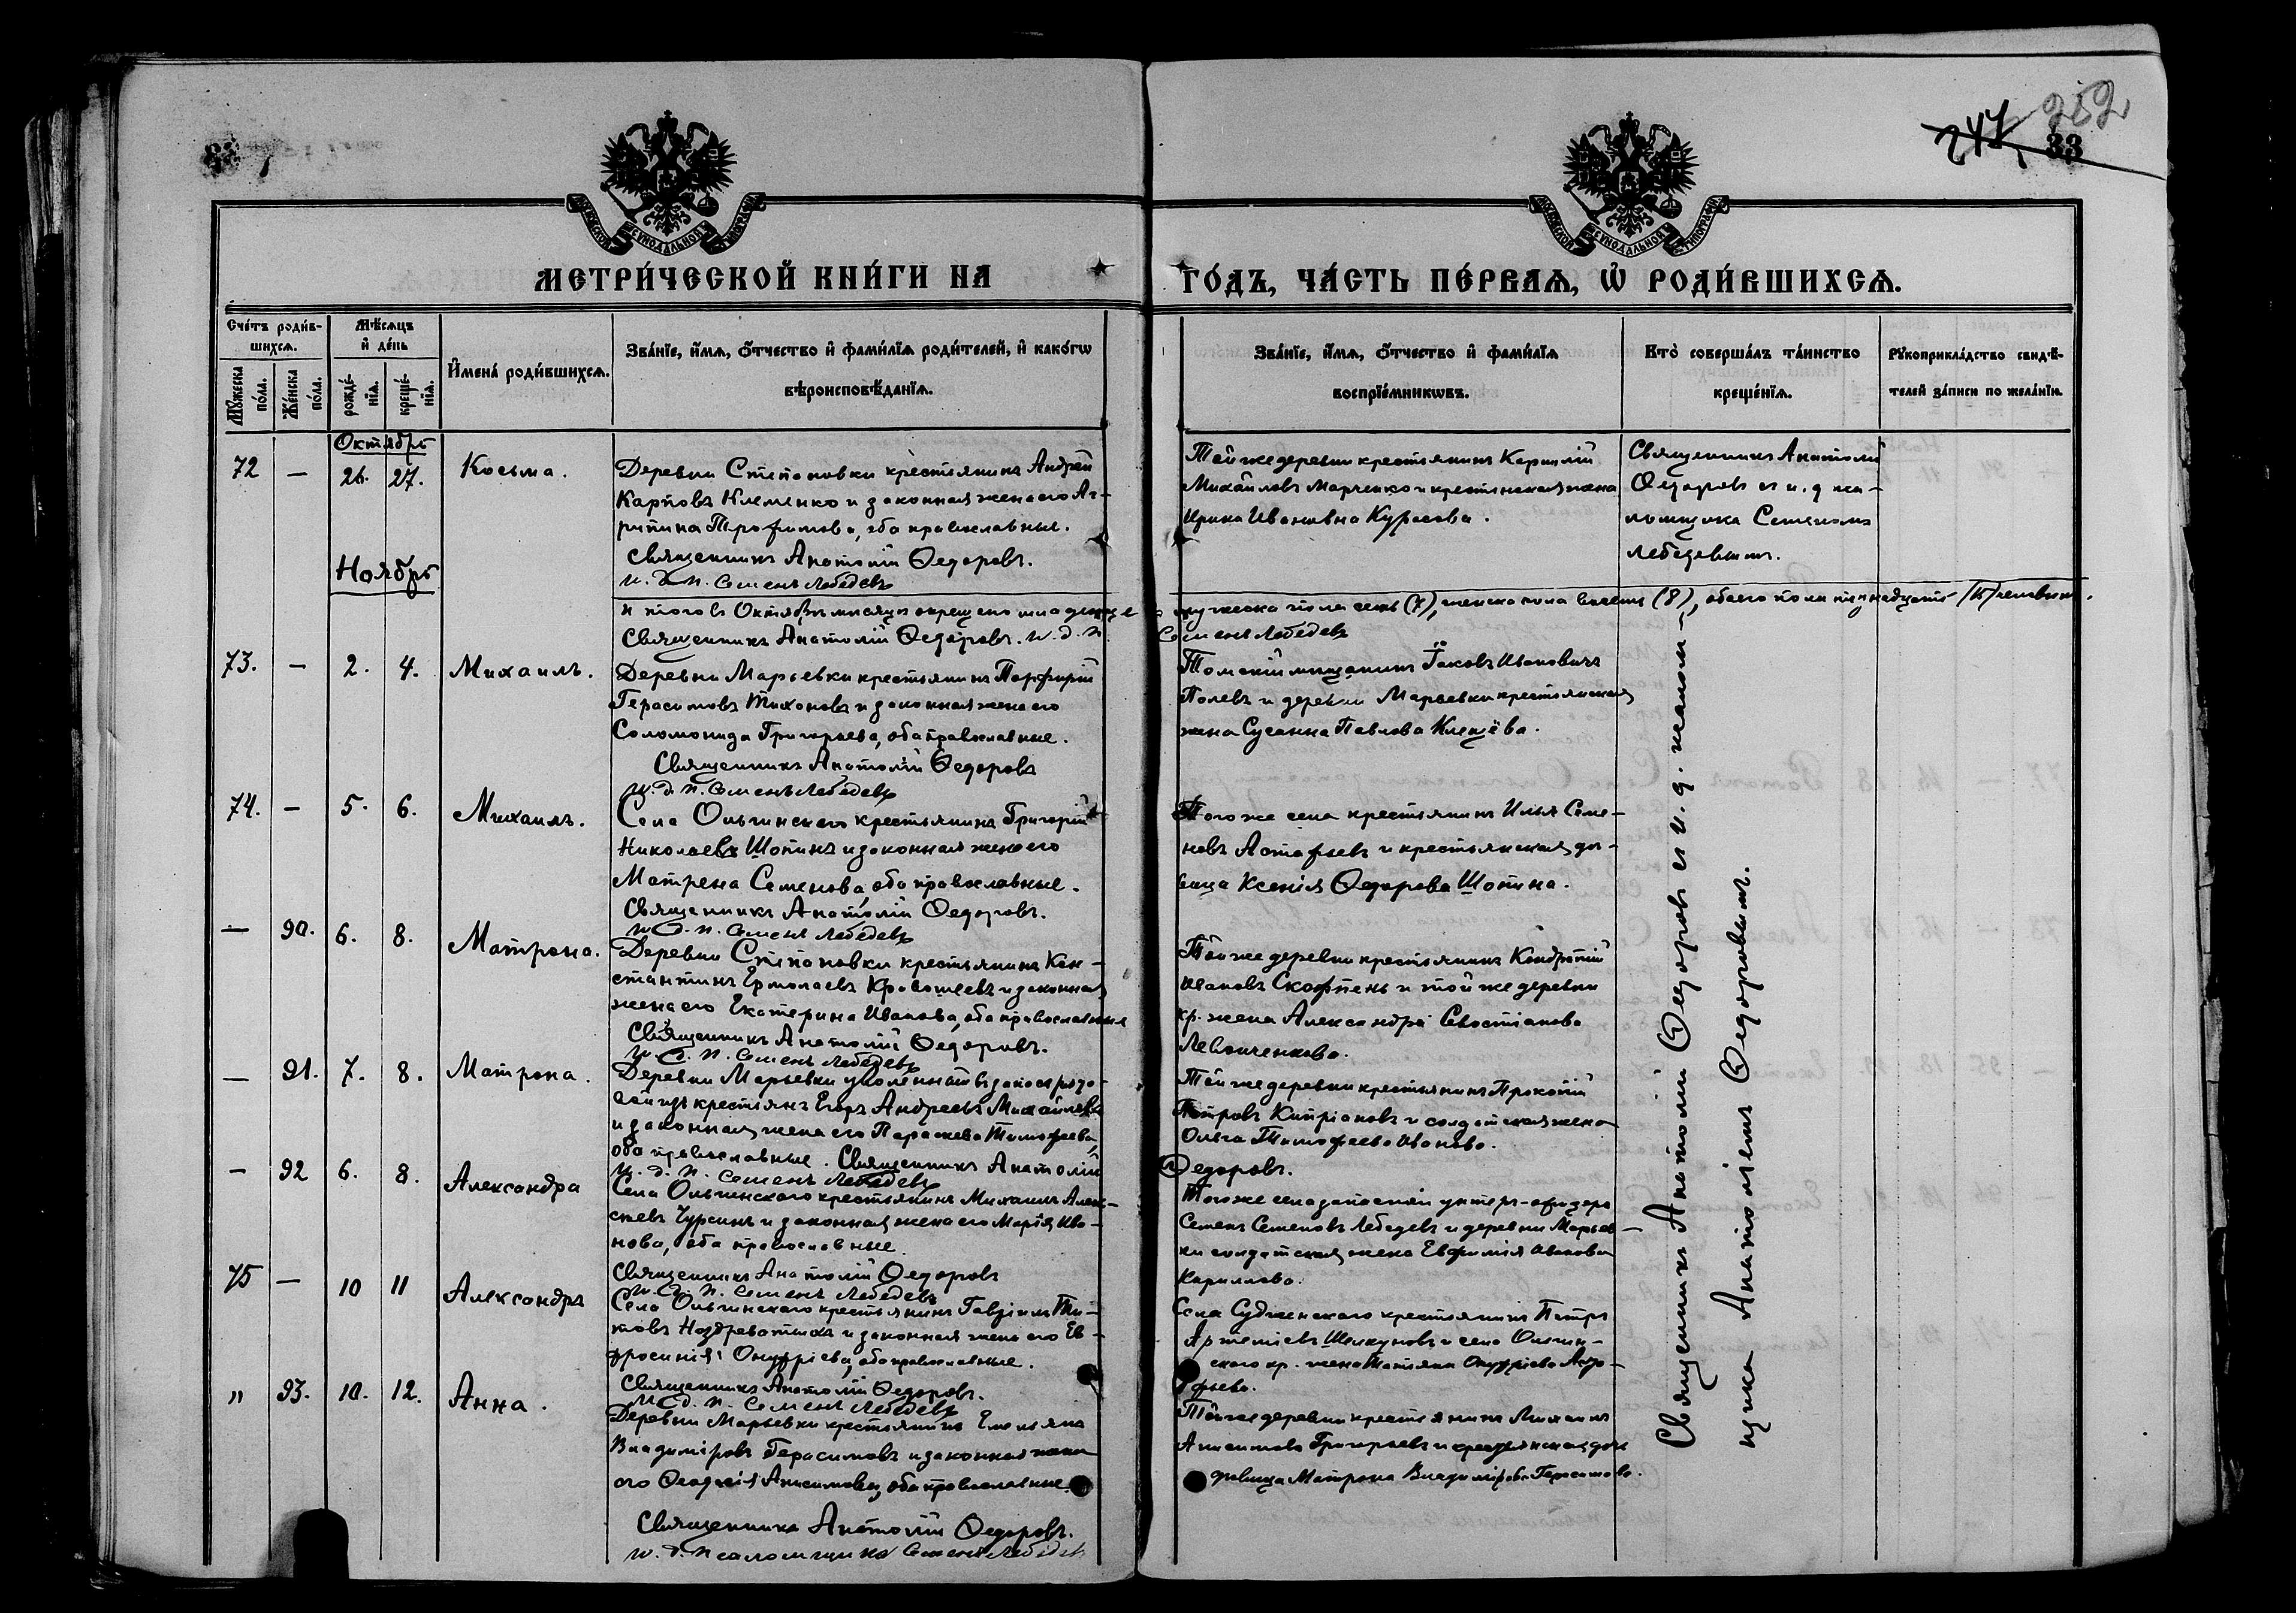 252
247
33
МОСКОВСКОЙ СѴНОДАЛЬНОЙ ТИПОГРАФІИ
МОСКОВСКОЙ СѴНОДАЛЬНОЙ ТИПОГРАФІИ
МЕТРИ́ЧЕСКОЙ КНИ́ГИ НА
ГО́ДЪ, ЧА́СТЬ ПЕ́РВАѦ, Ѡ҆ РОДИ́ВШИХСѦ.
Сче́тъ роди́в-
шихсѧ.
Мꙋ́жеска по́ла.
Же́нска по́ла.
Мѣ́сѧцъ
и҆ де́нь
рожде́-нїѧ.
креще́-нїѧ.
И҆мена̀ роди́вшихсѧ.
Зва́нїе, и҆́мѧ, ѻ҆́тчество и҆ фами́лїѧ роди́телей, и҆ како́гѡ
вѣроисповѣ́данїѧ.
Зва́нїе, и҆́мѧ, ѻ҆́тчество и҆ фами́лїѧ
воспрїе́мникѡвъ.
Кто̀ соверша́лъ та́инство
креще́нїѧ.
Рꙋкоприкла́дство свидѣ́-
телей за́писи по жела́нїю.
Октябрь
72 — 26. 27. Косьма.
Деревни Степановки крестьянинъ Андрей
Карповъ Клеменко и законная жена его Аг-
рипина Трофимова, оба православные.
Священникъ Анатолій Ѳедоровъ.
и. д. п. Семенъ Лебедевъ
Той же деревни крестьянинъ
Михайловъ Марченко и крестьянская жена
Ирина Ивановна Курасова.
Священникъ Анатолій
Ѳедоровъ съ и. д пса-
ломщика Семеномъ
Лебедевымъ.
Ноябрь
Итого въ Октябрѣ мѣсяцѣ окрещено младенце
въ мужеска пола семь (7), женска пола восемь (8), обоего пола пятнадцать (15) человѣкъ.
Священникъ Анатолій Ѳедоровъ. и. д. п.
Семенъ Лебедевъ
73. — 2. 4. Михаилъ.
Деревни Марьевки крестьянинъ Порфирій
Герасимовъ Тихоновъ и законная жена его
Соломонида Григорьева, оба православные.
Священникъ Анатолій Ѳедоровъ
и. д. п. Семенъ Лебедевъ
Томскій мещанинъ Іаковъ Ивановичъ
Полевъ и деревни Марьевки крестьянская
жена Сусанна Павлова Клещёва.
74. — 5. 6. Михаилъ.
Села Ольгинскаго крестьянинъ Григорій
Николаевъ Шопинъ и законная жена его
Матрена Семенова, оба православные.
Священникъ Анатолій Ѳедоровъ.
и. д. п. Семенъ Лебедевъ
Того же села крестьянинъ Илья Семе-
новъ Астафьевъ и крестьянская дѣ-
вица Ксенія Ѳедорова Шопина.
— 90. 6. 8. Матрона.
Деревни Степановки крестьянинъ Кон-
стантинъ Ермолаевъ и законная
жена его Екатерина Иванова, оба православные
Священникъ Анатолій Ѳедоровъ.
и. д. п. Семенъ Лебедевъ
Той же деревни крестьянинъ Кондратій
Ивановъ Скофпень и той же деревни
кр. жена Александра Севостіанова
Левонченкова.
— 91. 7. 8. Матрона.
Деревни Марьевки уволенный въ запасъ рядо-
вой изъ крестьянъ Егоръ Андреевъ Михайловъ
и законная жена его Параскева Тимофеева,
оба православные. Священникъ Анатолій
Ѳедоровъ.
и. д. п. Семенъ Лебедевъ
Той же деревни крестьянинъ Прокопій
Петровъ Кипріановъ и солдатская жена
Ольга Тимофеева Иванова.
— 92 6. 8. Александра
Села Ольгинскаго крестьянинъ Михаилъ Алек-
сѣевъ Чурсинъ и законная жена его Марія Ива-
нова, оба православные.
Священникъ Анатолій Ѳедоровъ
и. д. п. Семенъ Лебедевъ
Того же села запасный унтеръ-офицеръ
Семенъ Семеновъ Лебедевъ и деревни Марьев-
ки солдатская жена Евфимія Иванова
Кириллова.
75 — 10 11 Александръ
Села Ольгинскаго крестьянинъ Гавріилъ Ти-
товъ Ноздреватыхъ и законная жена его Ев-
фросинія Онуфріева, оба православные.
Священникъ Анатолій Ѳедоровъ.
и. д. п. Семенъ Лебедевъ
Села Судженскаго крестьянинъ Петръ
Артеміевъ Шелкуновъ и села Ольгин-
скаго кр. жена Татьяна Онуфріева
" 93. 10. 12. Анна.
Деревни Марьевки крестьянинъ Емельянъ
Владиміровъ Герасимовъ и законная жена
его Ѳеодосія Анисимова, оба православные.
Священникъ Анатолій Ѳедоровъ.
и. д. псаломщика Семенъ Лебедевъ
Той же деревни крестьянинъ Михаилъ
Анисимовъ Григорьевъ и крестьянская
дѣвица Матрона Владимірова Герасимова.
Священникъ Анатолій Ѳедоровъ съ и. д. псалом-
щика Анатоліемъ Ѳедоровымъ.